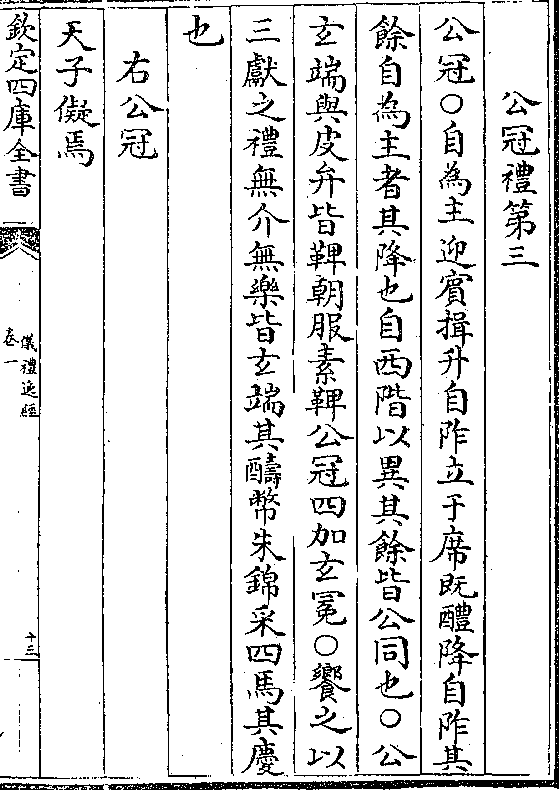 公冠禮第三
公冠○自為主迎賓揖升自阼立于席既醴降自阼其
餘自為主者其降也自西階以異其餘皆公同也○公
玄端與皮弁皆鞸朝服素鞸公冠四加玄冕○饗之以
三獻之禮無介無樂皆玄端其醻幣朱錦采四馬其慶
也
右公冠
天子儗焉
欽定四庫全書
儀禮逸經
卷一
十三